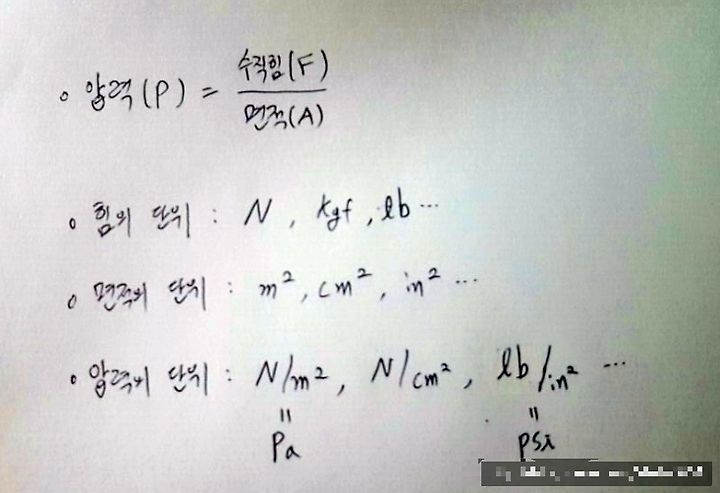 • 압력(P) = 수직힘(F) / 면적(A)
• 힘의 단위 : N , kgf , lb ...
• 면적의 단위 : m², cm², in² ...
• 압력의 단위 : N/m², N/cm², lb/in² ...
= =
Pa psi